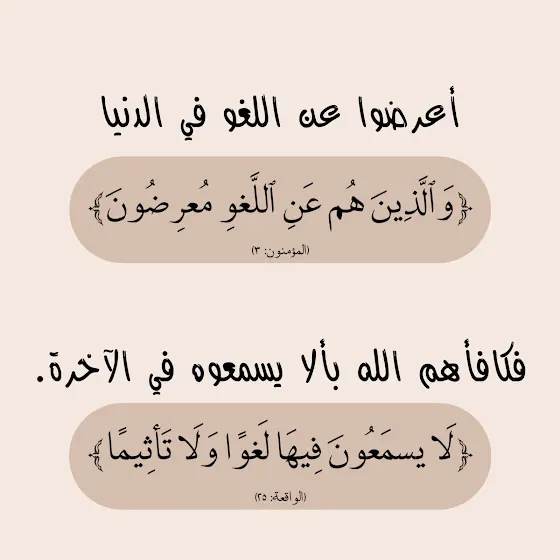 أعرضوا عن اللغو في الدنيا
﴿وَٱلَّذِينَ هُم عَنِ ٱللَّغوِ مُعرِضُونَ﴾
(المؤمنون: ٣)
فكافأهم الله بألا يسمعوه في الآخرة.
﴿لَا يسمَعُونَ فِيهَا لَغوًا وَلَا تَأثِيمًا﴾
(الواقعة: ٢٥)